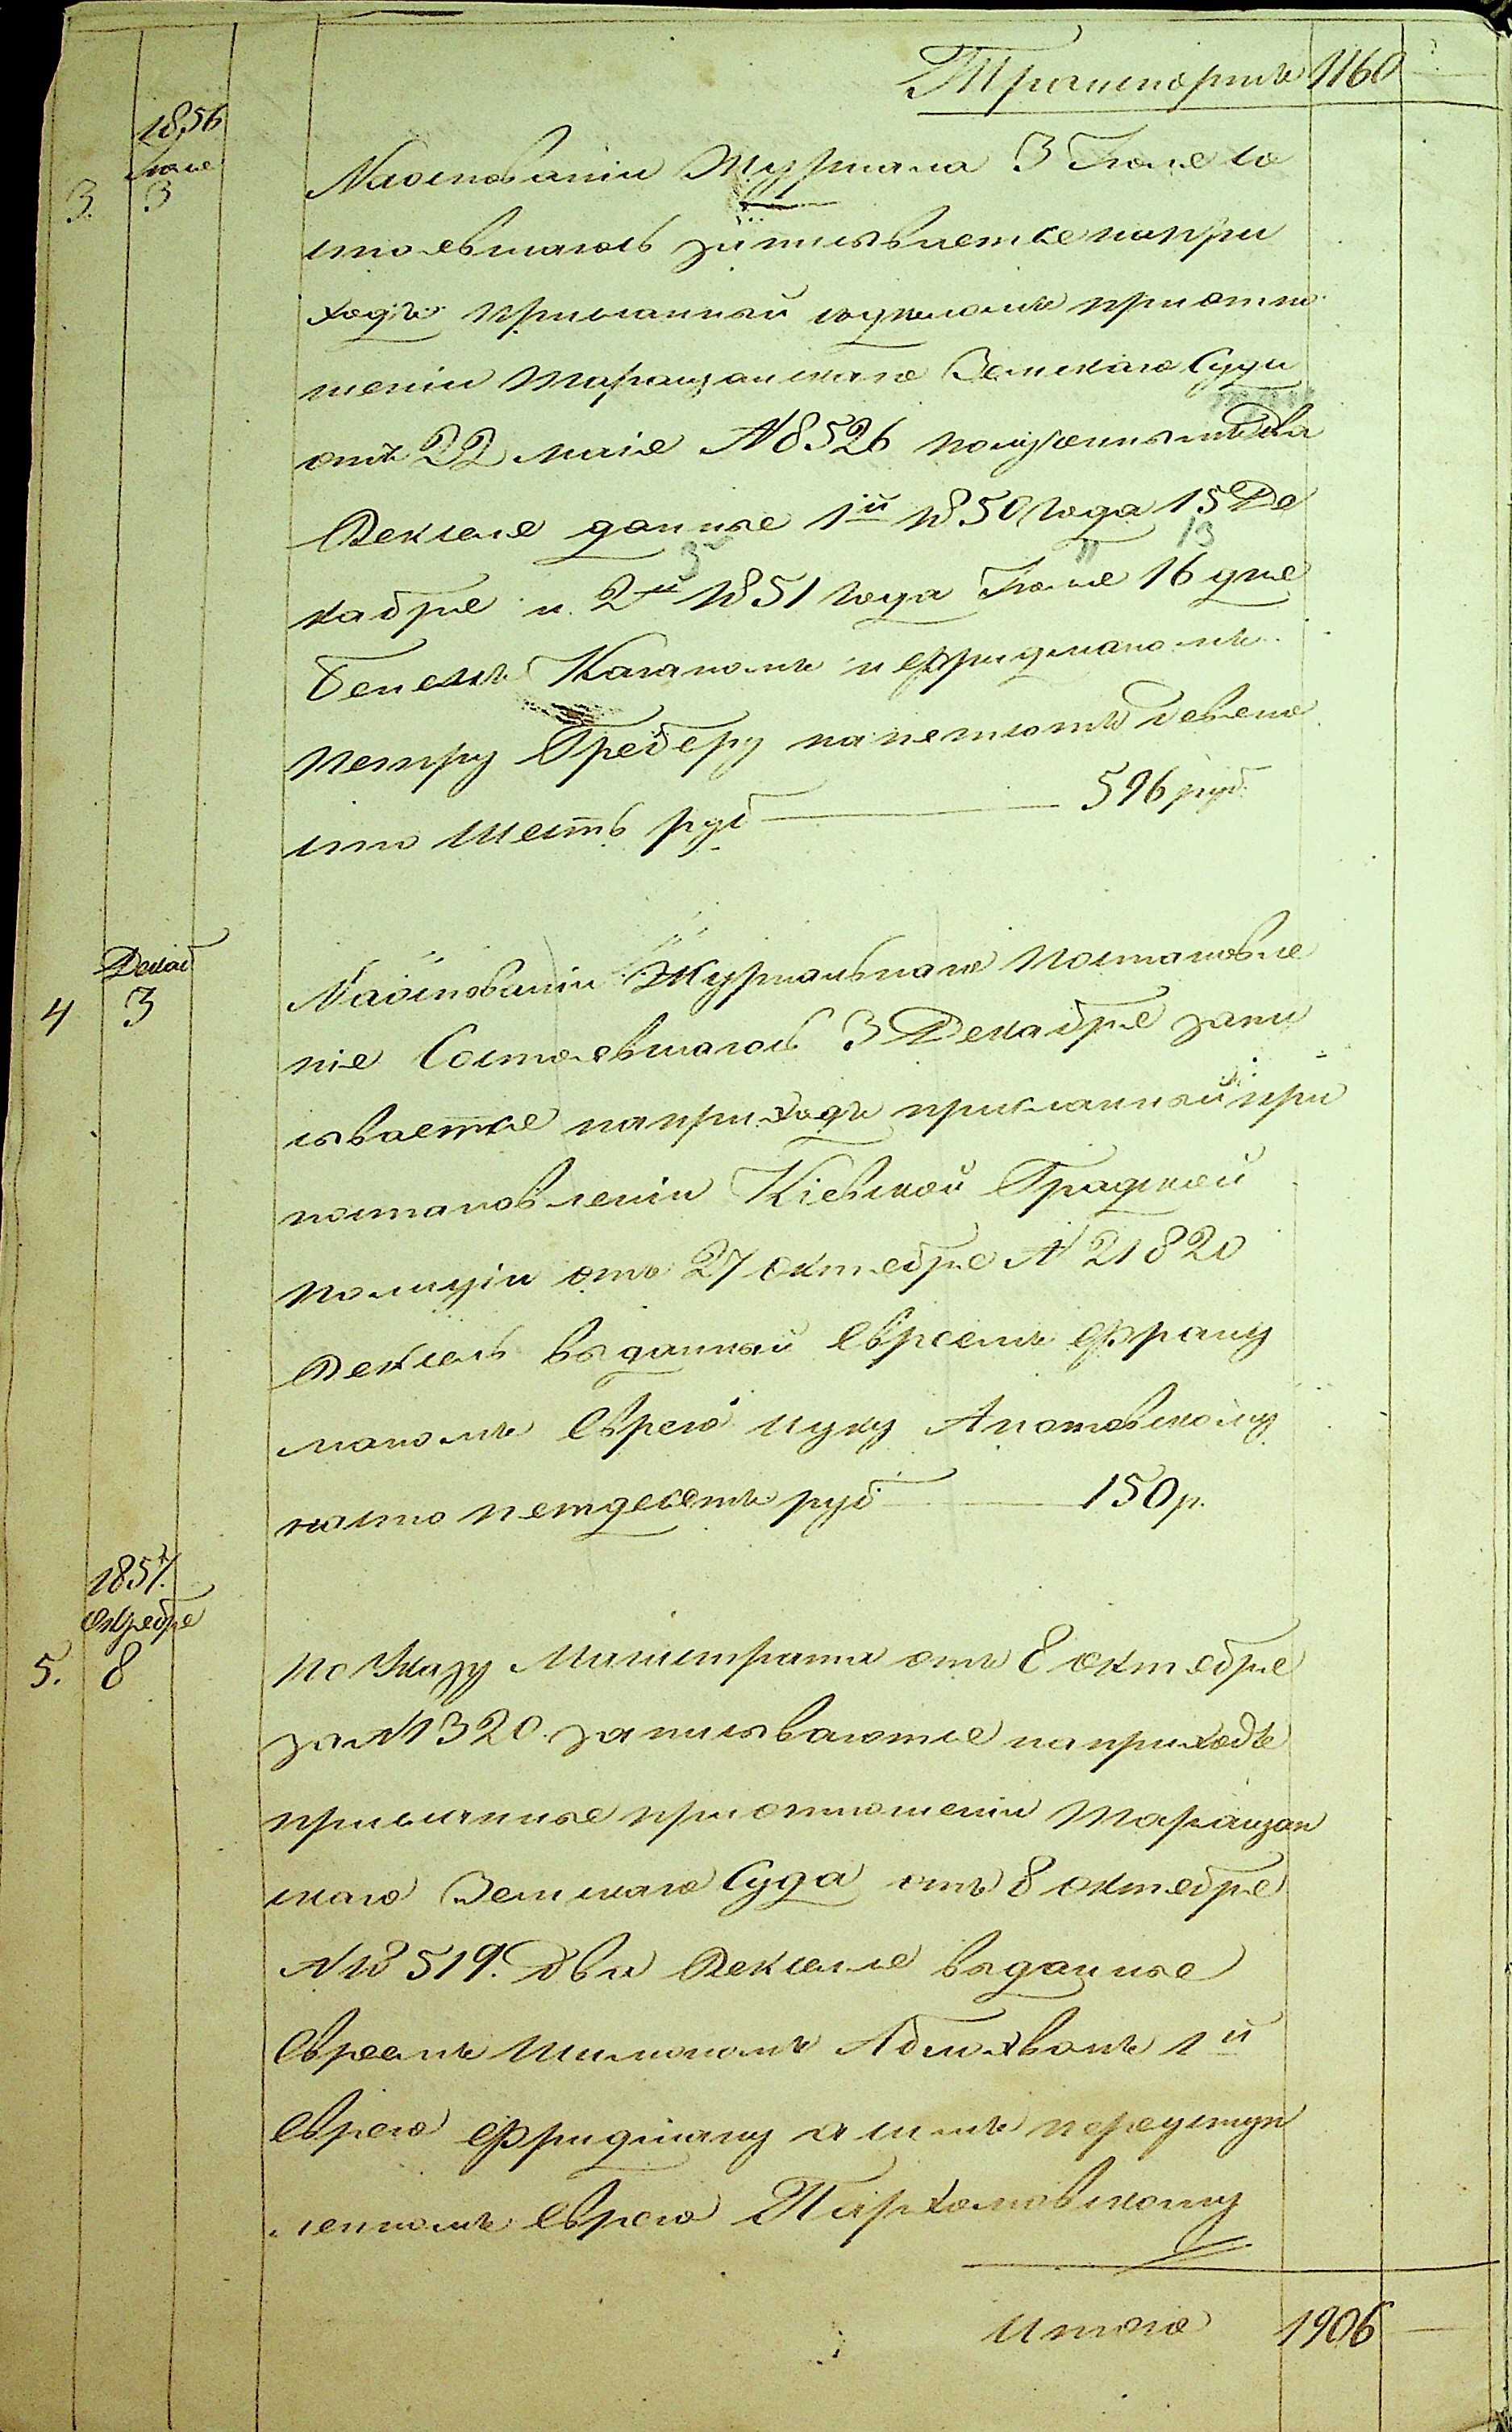 Транспортъ 1160
1856
Іюля
3. 3
На основаніи Журнала 3 Іюля со
стоявшагось записывается на при
ходъ присланный при отно
шеніи Таращанскаго Земскаго Суда
отъ 22 маія № 8526 два
Векселя данные 1й 1850 года 15 Де
13
кабря и 2й 1851 года Іюля 16 дня
Каганомъ и Фридманомъ
Петру Греберу на пятсотъ девяно
сто шесть руб 596 руб.
Декаб
4 3
На основаніи Журнальнаго Постановле
нія Состоявшагось 3 Декабря запи
сывается на приходъ присланный при
постановленіи Кіевской Градской
Полиціи отъ 27 октября № 21820
Вексель выданный Евреемъ Фрид
маномъ Еврею Ицку
на сто пятдесятъ руб 150 р.
1857.
Октября
5. 8
По Указу Магистрата отъ 8 октября
за № 1320. записываются на приходъ
присланные при отношеніи Таращан
скаго Земскаго Суда отъ 8 октября
№ 18519. два Векселя выданные
Евреемъ Шимономъ 1й
Еврею Фридману а симъ переуступ
леннымъ Еврею Пархомовскому
Итого 1906